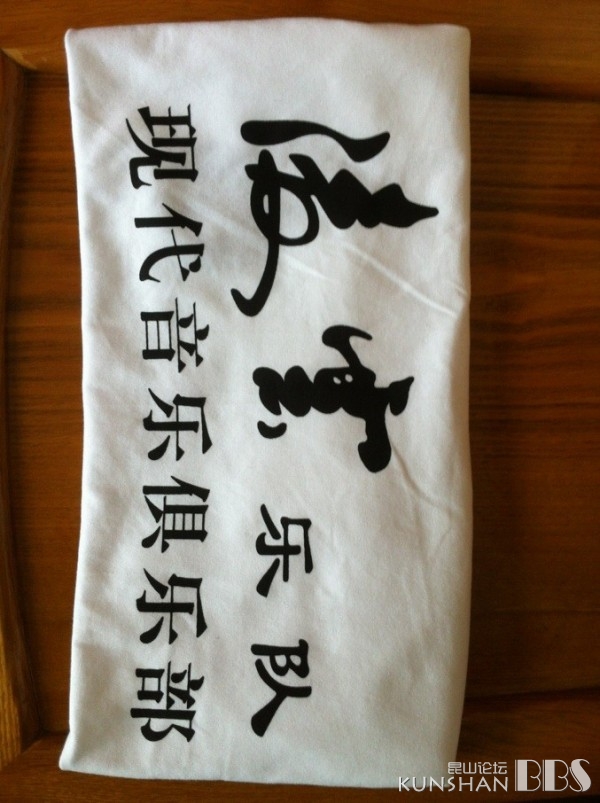 凌雲乐队
现代音乐俱乐部
昆山论坛
KUNSHAN BBS